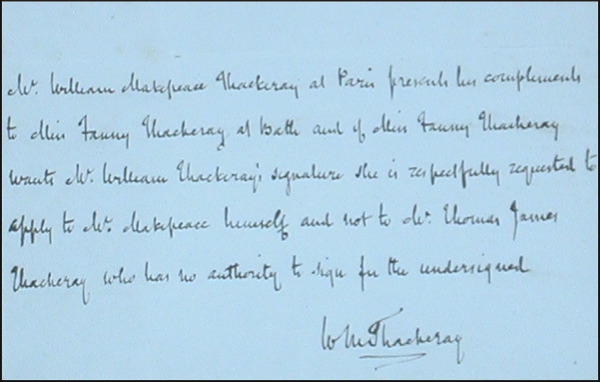 Mr. William Makepeace Thackeray at Paris presents his compliments
to Miss Fanny Thackeray at Bath and if Miss Fanny Thackeray
wants Mr. William Thackeray's signature she is respectfully requested to
apply to Mr. Makepeace himself and not to Mr. Thomas James
Thackeray who has no authority to sign for the undersigned
WMThackeray